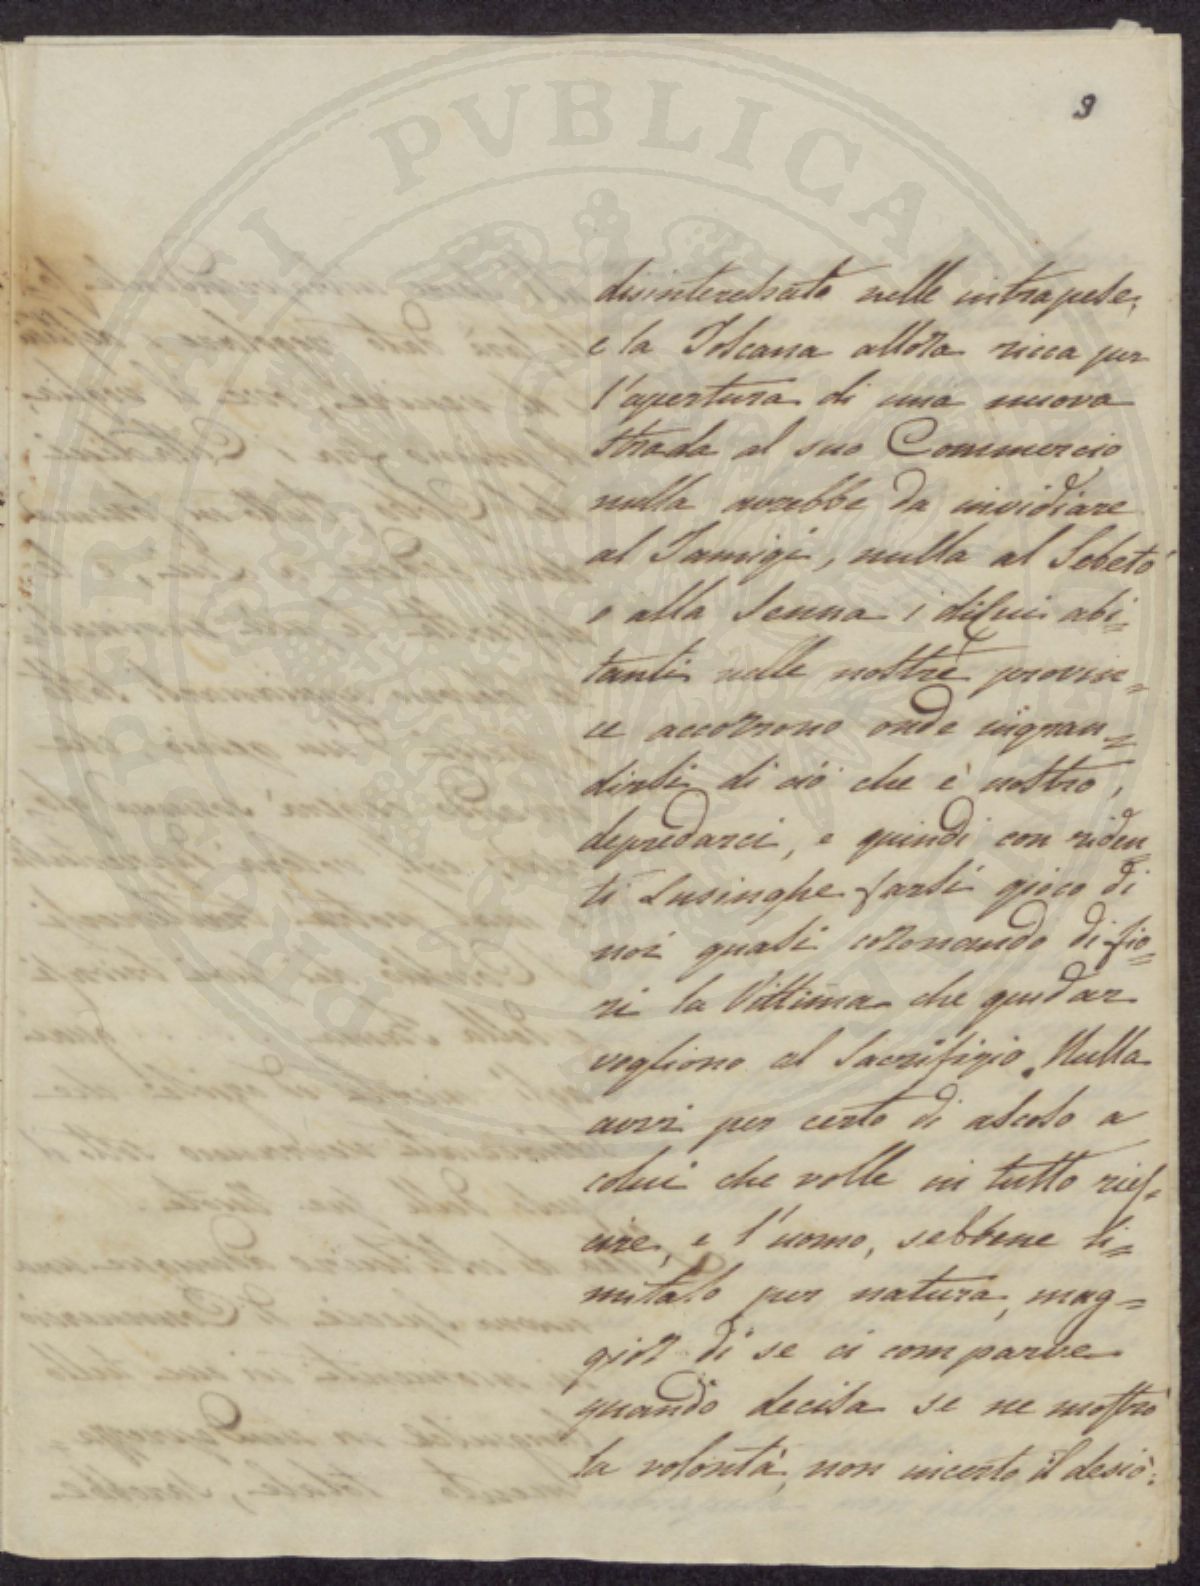 3
disinteressato nelle intraprese,
e la Toscana allora ricca per
l'apertura di una nuova
strada al suo Commercio
nulla avrebbe da invidiare
al Tamigi, nulla al Sebeto
o alla Senna i di cui abi=
tanti nelle nostre provin=
ce accorrono onde ingran=
dirsi di ciò che è nostro,
depredarci, e quindi con riden
ti Lusinghe farsi gioco di
noi quasi coronando di fio=
ri la Vittima che guidar
vogliono al Sacrifizio. Nulla
avvi per certo di ascoso a
colui che volle in tutto ries=
cire, e l'uomo, sebbene li=
mitato per natura, mag=
gior di se ci comparve
quando decisa se ne mostrò
la volontà, non incerto il desio:
PERIALI PVBLICAE